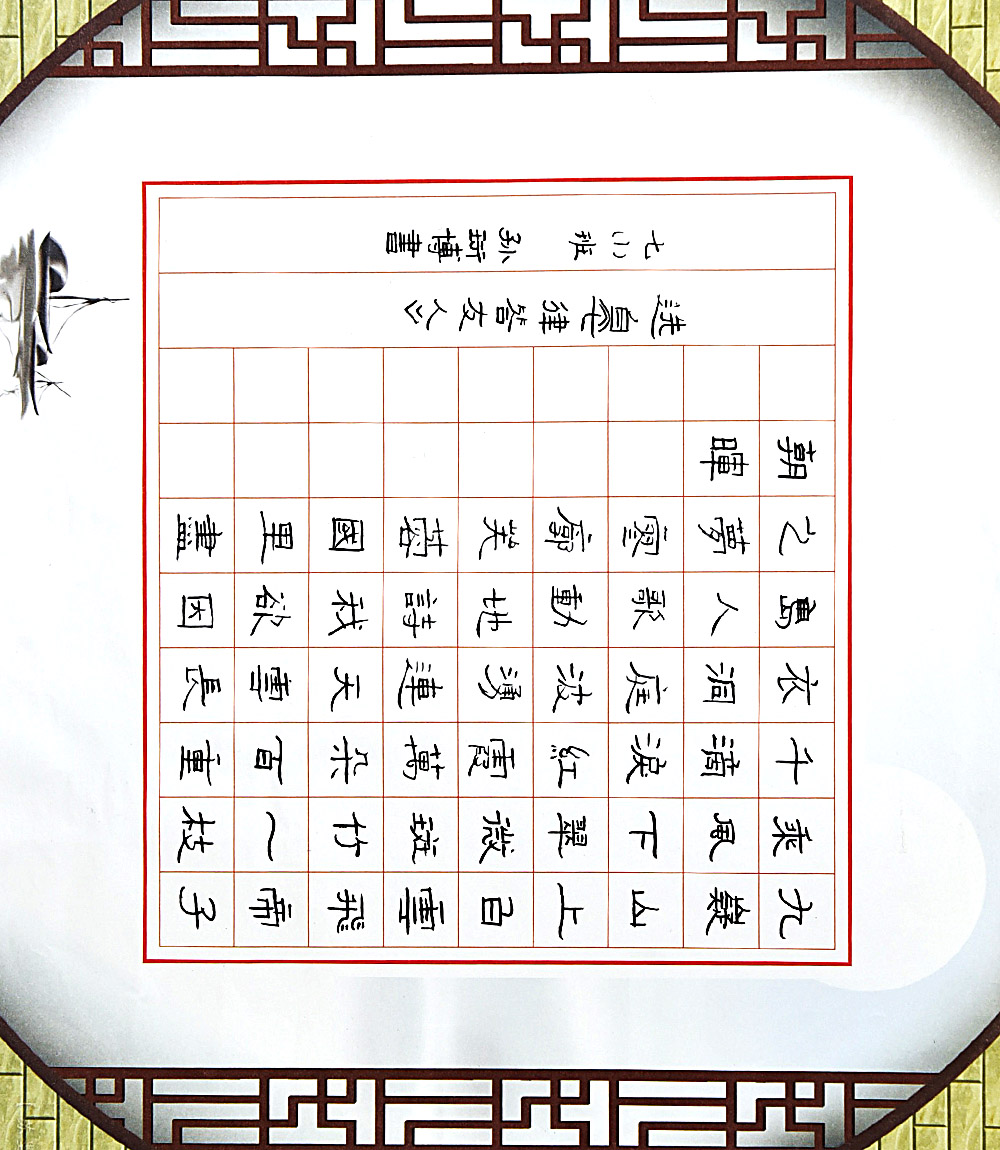 九嶷山上白雲飛帝子
乘風下翠微斑竹一枝
千滴淚紅霞萬朵百重
衣洞庭波湧連天雪長
島人歌動地詩我欲因
之夢寥廓芙蓉國里盡
朝暉
选自《七律答友人》
七(1)班 孙博書